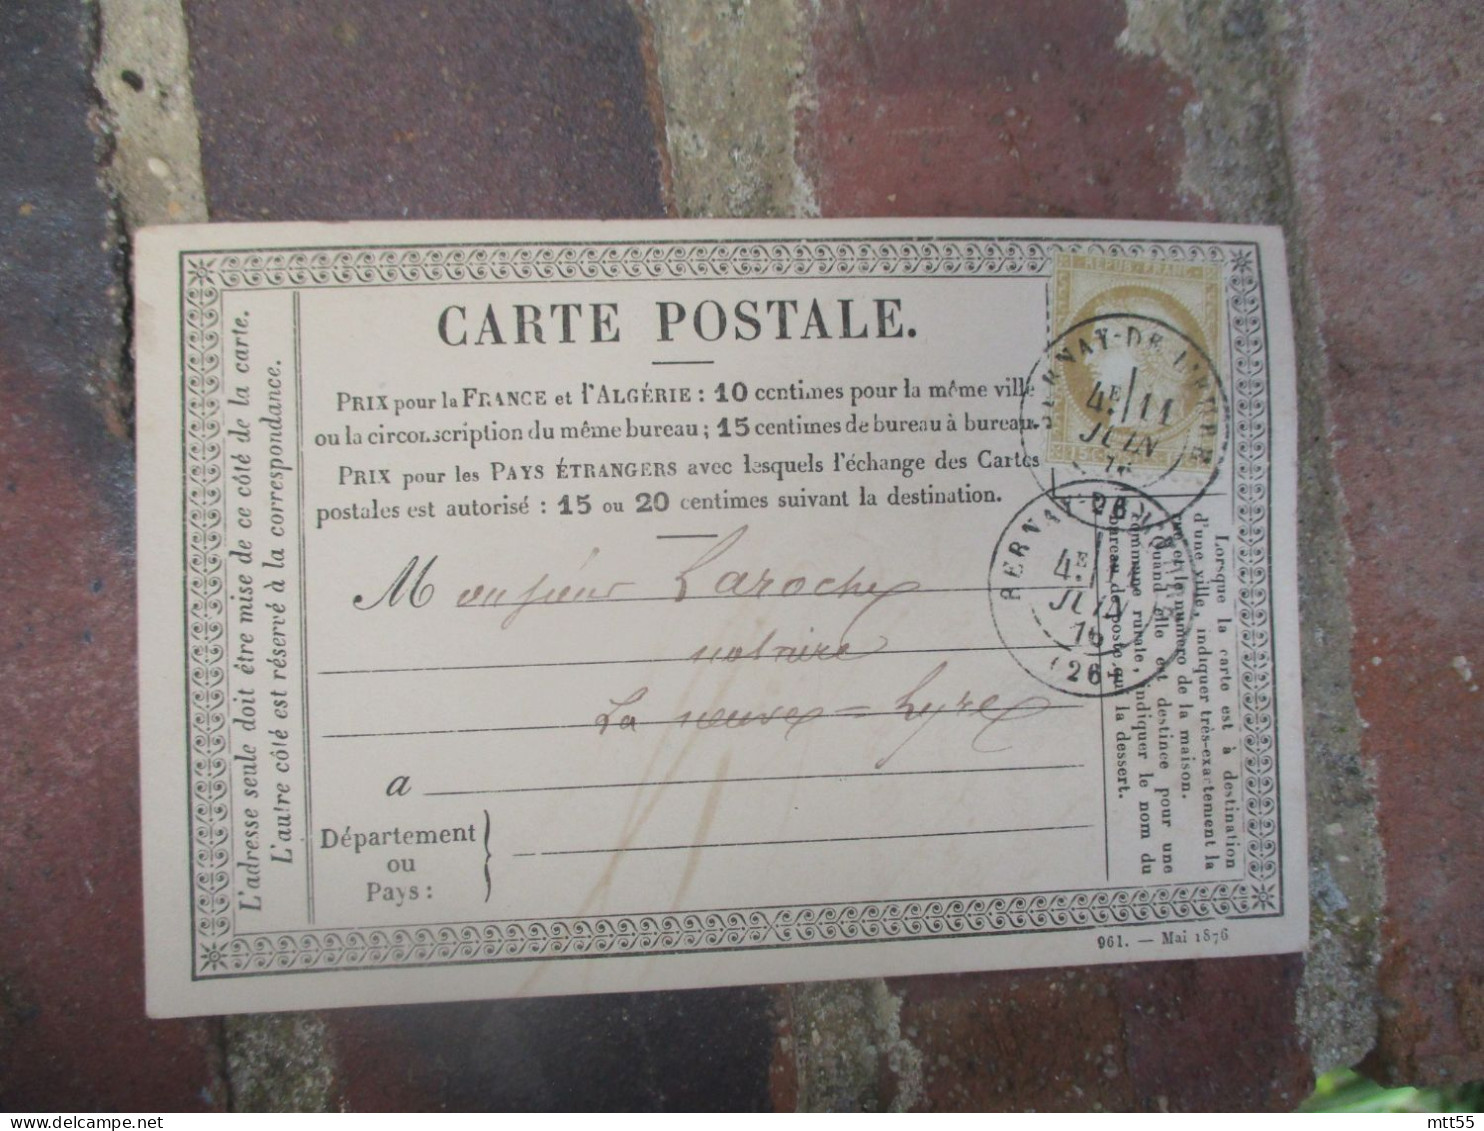 CARTE POSTALE.
PRIX pour la FRANCE et l'ALGÉRIE : 10 centimes pour la même ville
ou la circonscription du même bureau ; 15 centimes de bureau à bureau.
PRIX pour les PAYS ÉTRANGERS avec lesquels l'échange des Cartes
postales est autorisé : 15 ou 20 centimes suivant la destination.
Monsieur Laroche
notaire
La neuve=Lyre
a
Département
ou
Pays :
L'adresse seule doit être mise de ce côté de la carte.
L'autre côté est réservé à la correspondance.
REPUB · FRANC ·
15 c
BERNAY-DE L'EURE
4E/11
JUIN
76
BERNAY-DE
4E/
JUIN
76
(26)
Lorsque la carte est à destination
d'une ville, indiquer très-exactement la
rue et le numéro de la maison.
Quand elle est destinée pour une
commune rurale, indiquer le nom du
bureau de poste qui la dessert.
961. — Mai 1876
mtt55